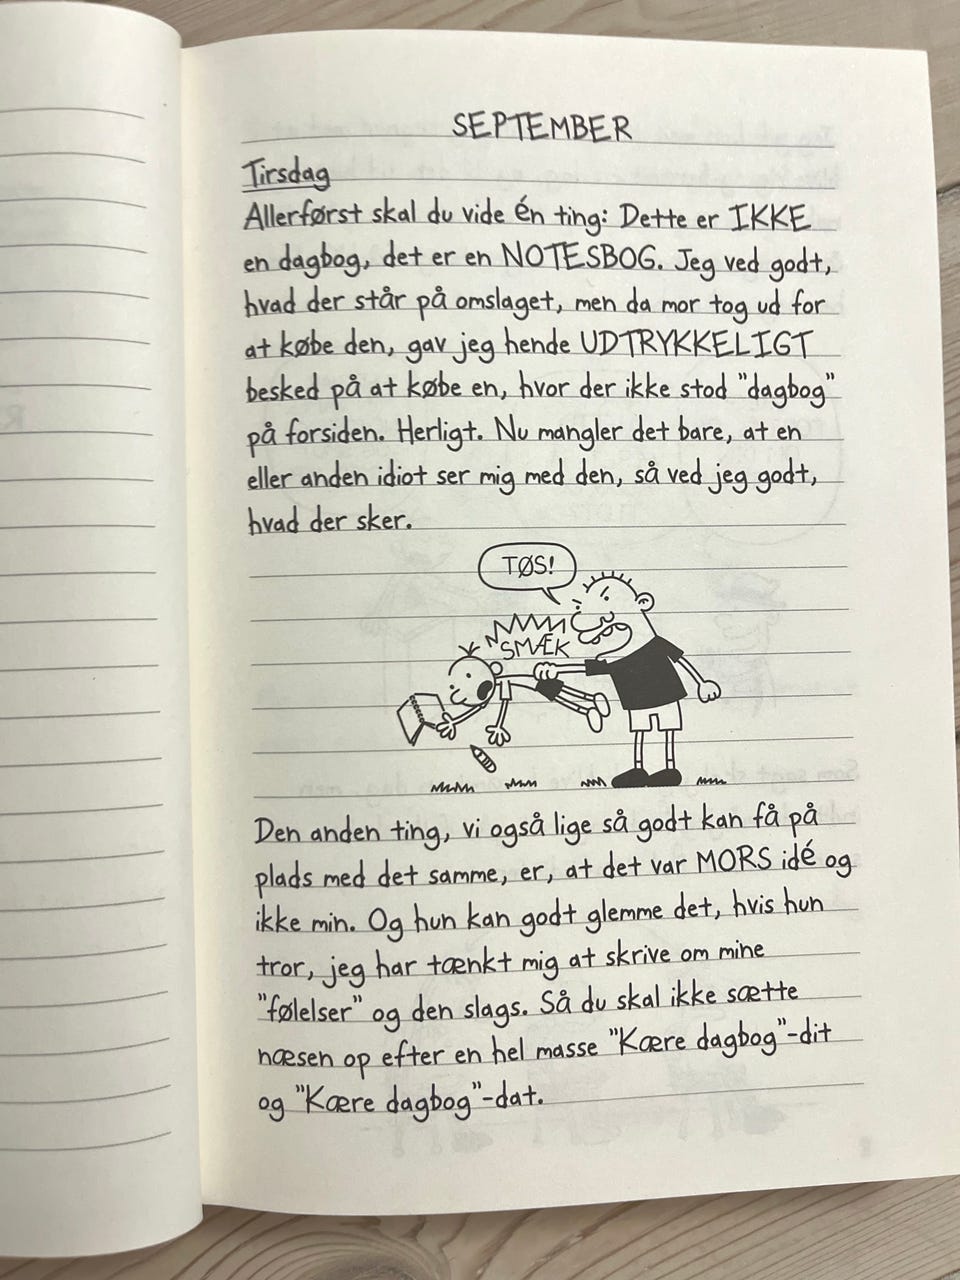 SEPTEMBER
Tirsdag
Allerførst skal du vide én ting: Dette er IKKE
en dagbog, det er en NOTESBOG. Jeg ved godt,
hvad der står på omslaget, men da mor tog ud for
at købe den, gav jeg hende UDTRYKKELIGT
besked på at købe en, hvor der ikke stod "dagbog"
på forsiden. Herligt. Nu mangler det bare, at en
eller anden idiot ser mig med den, så ved jeg godt,
hvad der sker.
TØS!
SMÆK
Den anden ting, vi også lige så godt kan få på
plads med det samme, er, at det var MORS idé og
ikke min. Og hun kan godt glemme det, hvis hun
tror, jeg har tænkt mig at skrive om mine
"følelser" og den slags. Så du skal ikke sætte
næsen op efter en hel masse "Kære dagbog"-dit
og "Kære dagbog"-dat.